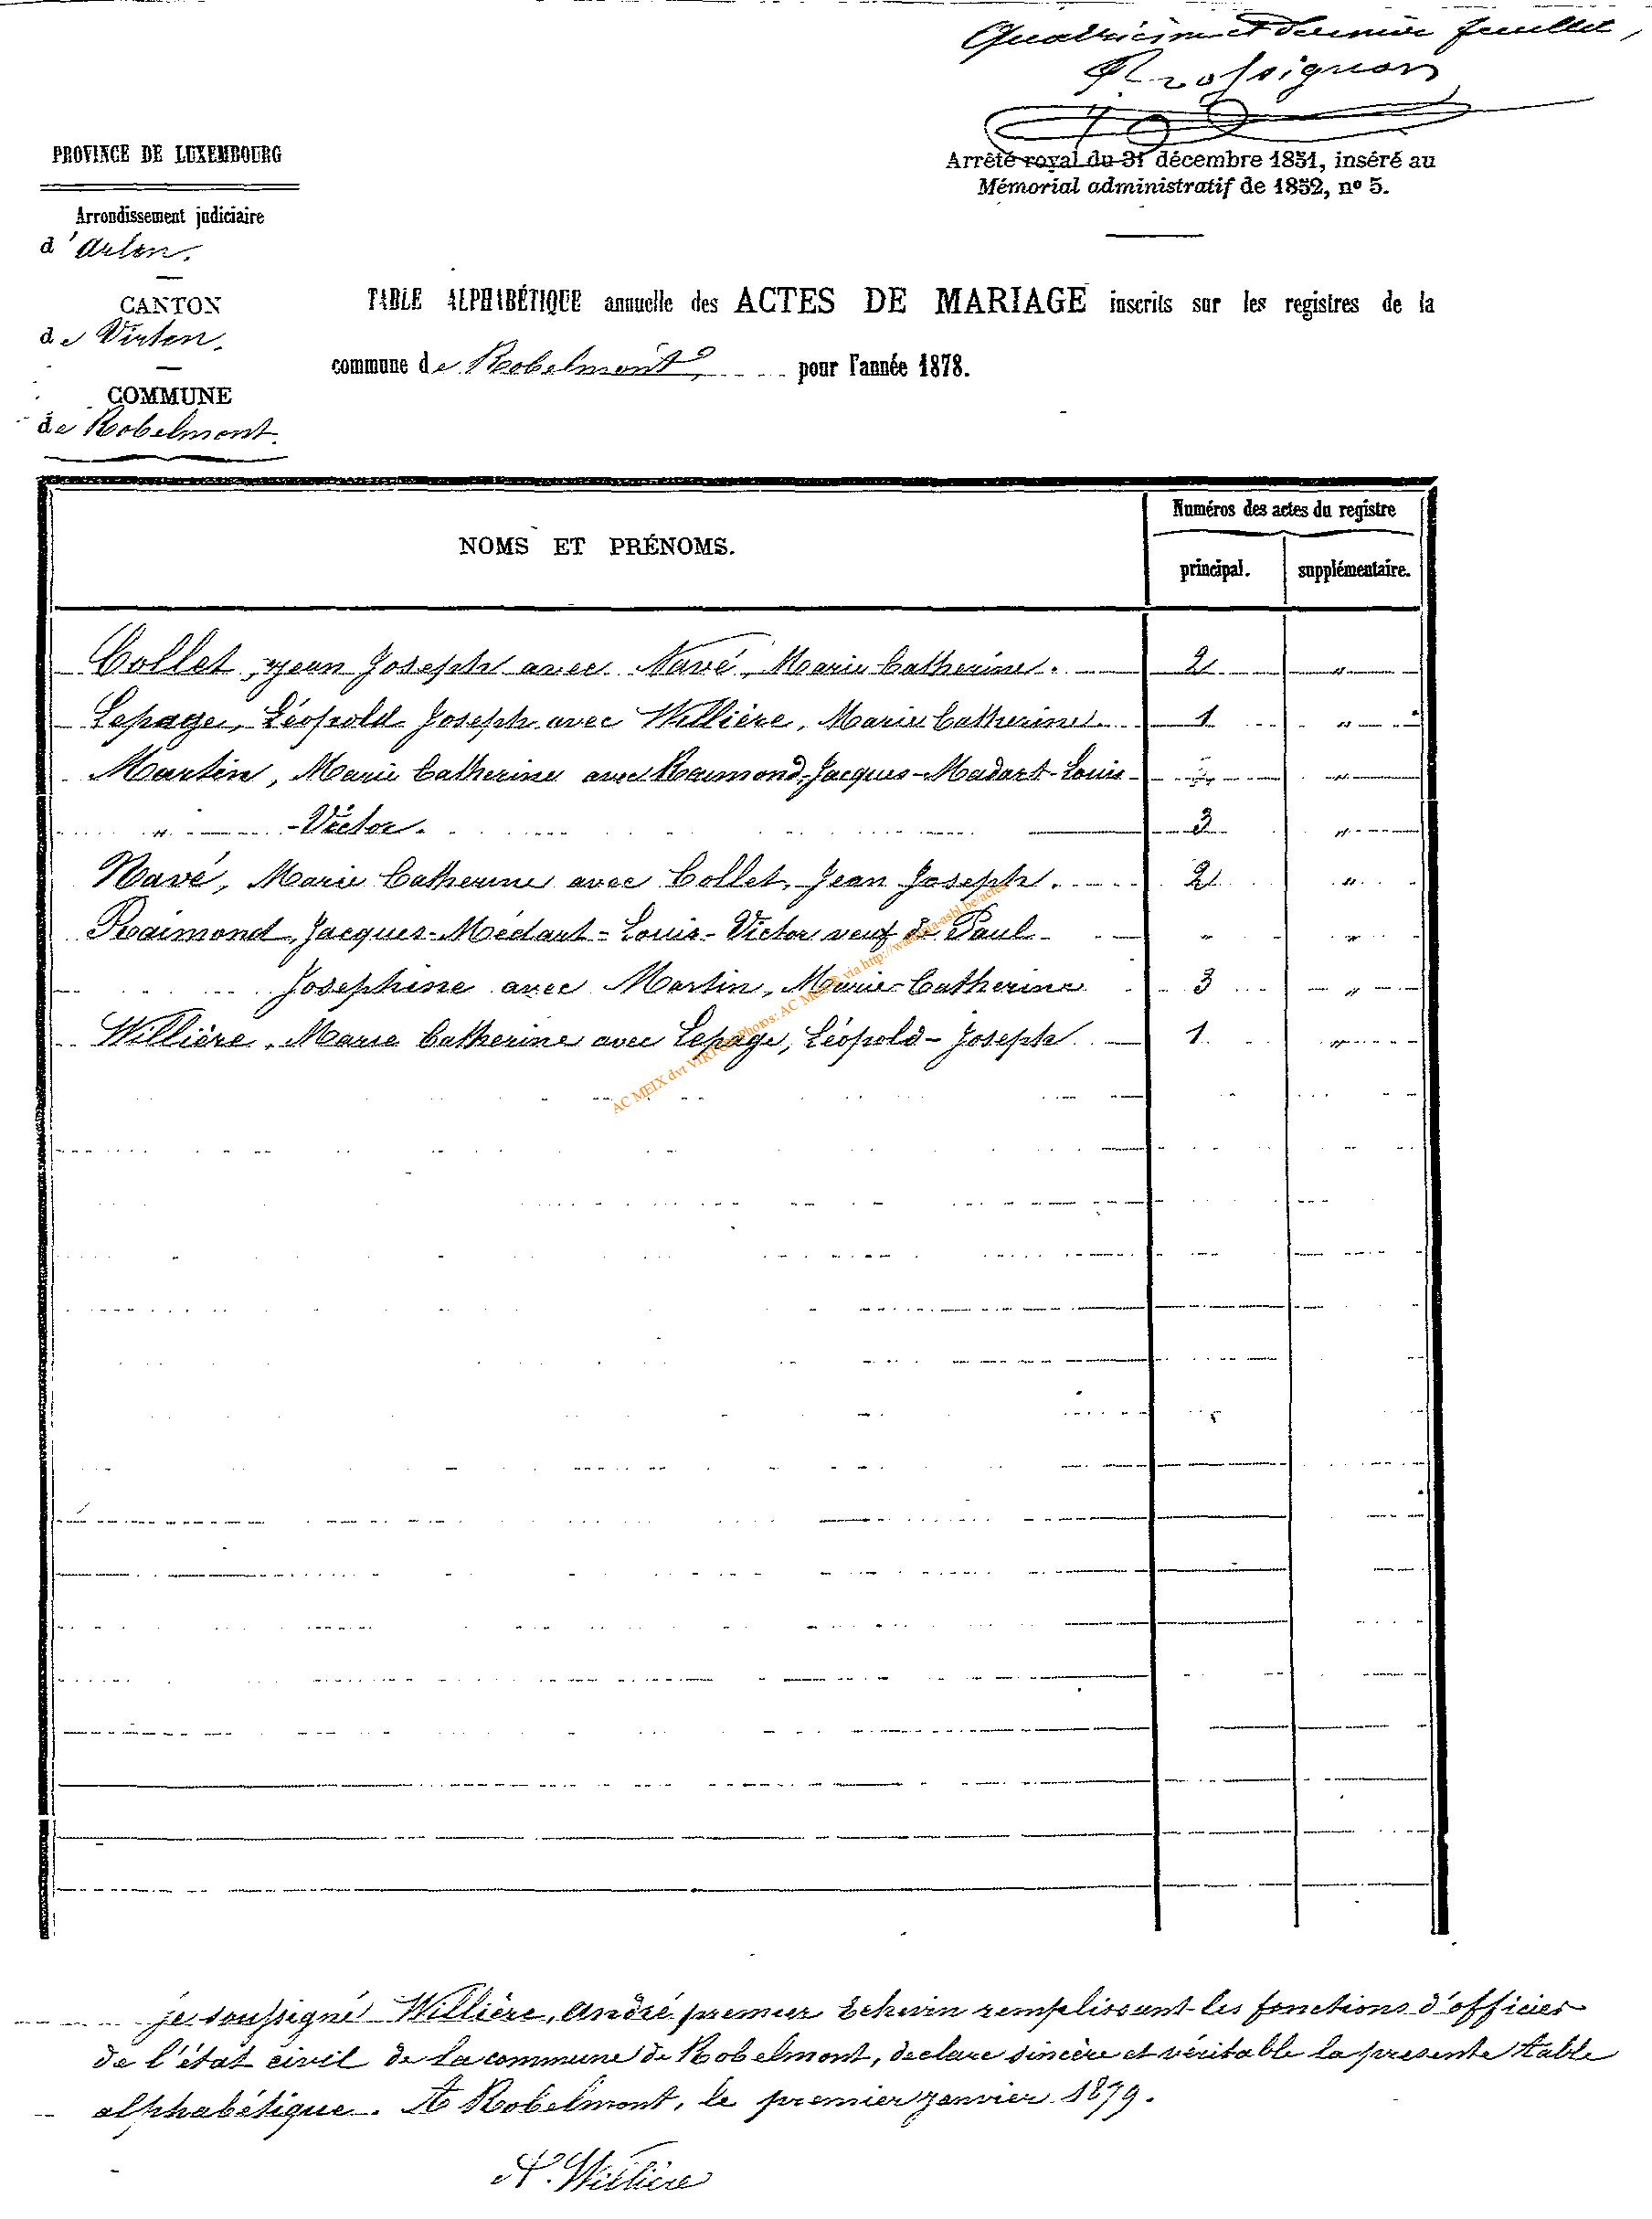 Quatrième et dernier feuillet,
Rossignon
PROVINCE DE LUXEMBOURG
Arrêté royal du 31 décembre 1851, inséré au
Mémorial administratif de 1852, nº 5.
Arrondissement judiciaire
d'Arlon.
CANTON
de Virton.
COMMUNE
de Robelmont.
TABLE ALPHABÉTIQUE annuelle des ACTES DE MARIAGE inscrits sur les registres de la
commune de Robelmont, pour l'année 1878.
NOMS ET PRÉNOMS. Numéros des actes du registre
principal. supplémentaire.
Collet, Jean Joseph avec Navé, Marie Catherine. 2 "
Lepage, Léopold Joseph avec Willière, Marie Catherine. 1 "
Martin, Marie Catherine avec Raimond, Jacques-Madart-Louis- " "
" -Victor. 3 "
Navé, Marie Catherine avec Collet, Jean Joseph. 2 "
Raimond, Jacques-Médart-Louis-Victor veuf de Paul " "
Josephine avec Martin, Marie-Catherine 3 "
Willière, Marie Catherine avec Lepage, Léopold-Joseph 1 "
je soussigné Willière, André premier Echevin remplissant les fonctions d'officier
de l'état civil de la commune de Robelmont, declare sincère et véritable la presente table
alphabétique. A Robelmont, le premier janvier 1879.
A. Willière